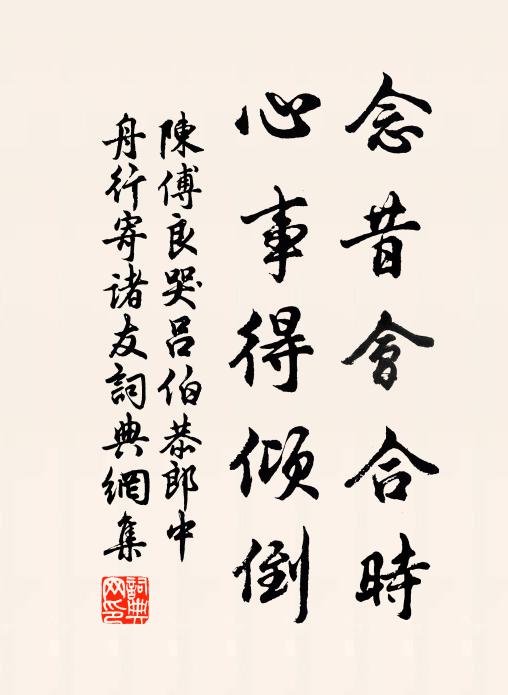 念昔會合時
心事得傾倒
陳傅良哭吕伯恭郎中
舟行寄诸友詞典網集
詞典網印